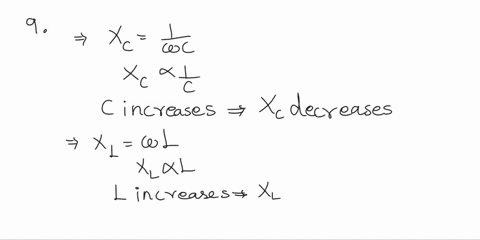 9.
⇒ X_C = 1/ωC
X_C ∝ 1/C
C increases ⇒ X_C decreases
⇒ X_L = ωL
X_L ∝ L
L increases ⇒ X_L